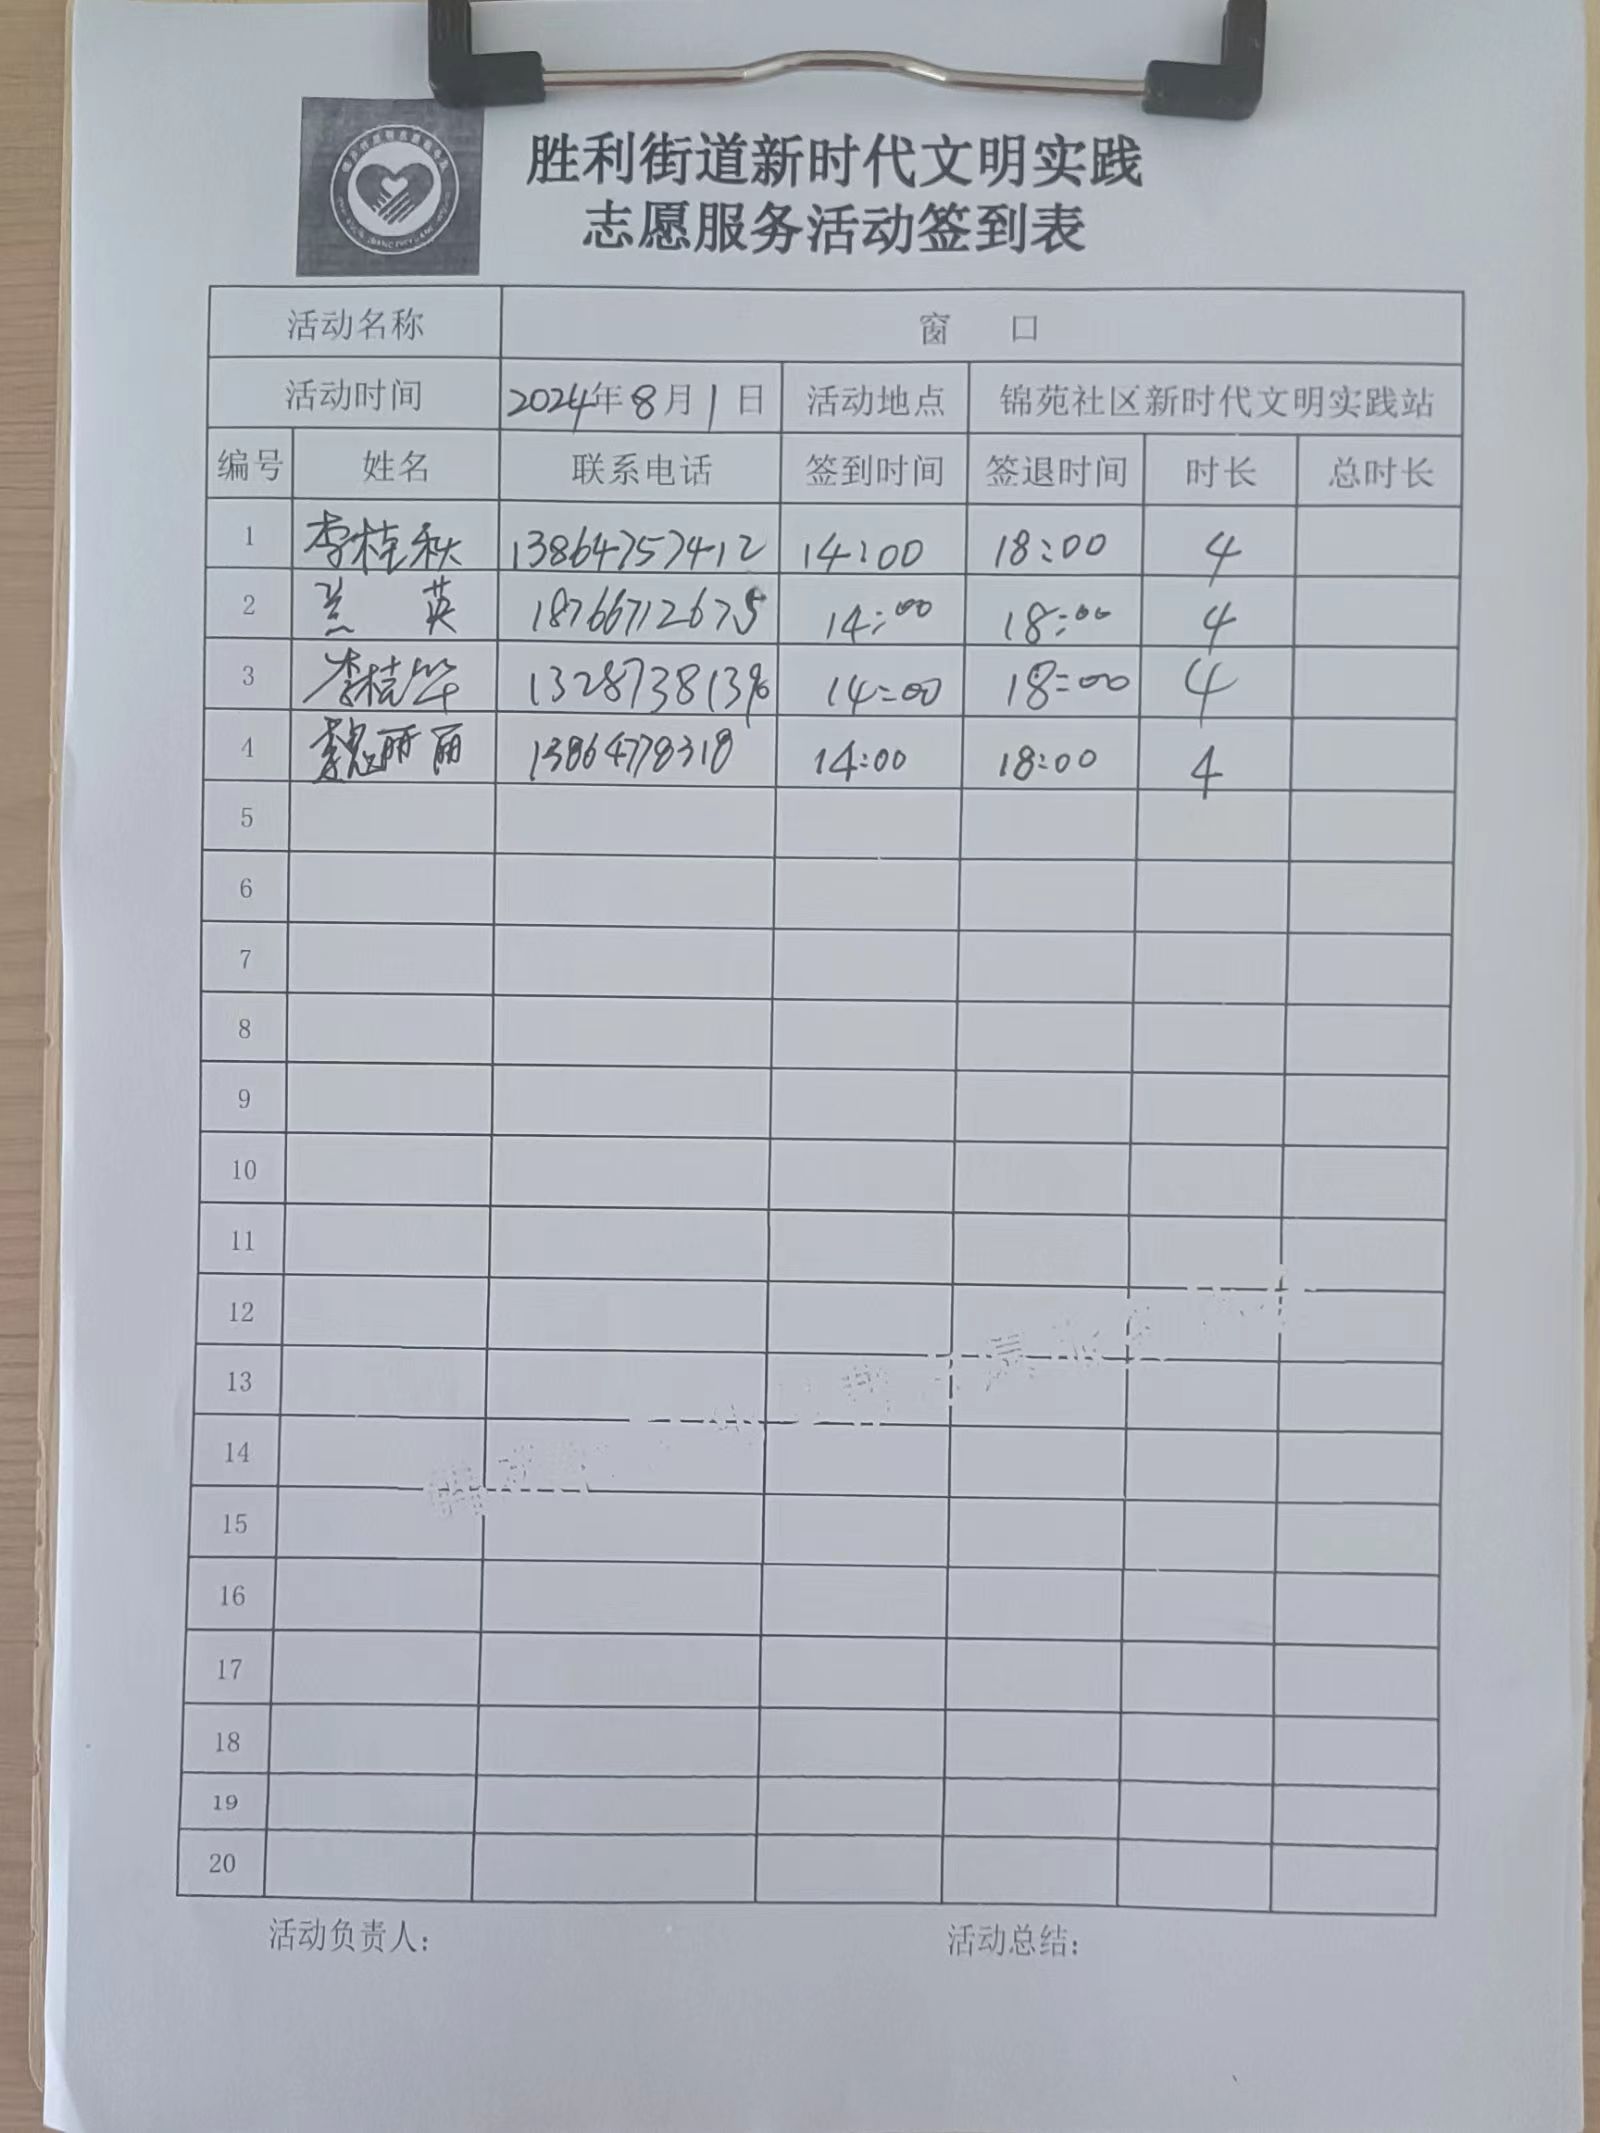 胜利街道新时代文明实践
志愿服务活动签到表
活动名称 窗 口
活动时间 2024年8月1日 活动地点 锦苑社区新时代文明实践站
编号 姓名 联系电话 签到时间 签退时间 时长 总时长
1 李桂秋 13864757412 14:00 18:00 4
2 兰 英 18766712675 14:00 18:00 4
3 李桂华 14:00 18:00 4
4 魏丽丽 13864778318 14:00 18:00 4
5
6
7
8
9
10
11
12
13
14
15
16
17
18
19
20
活动负责人: 活动总结: